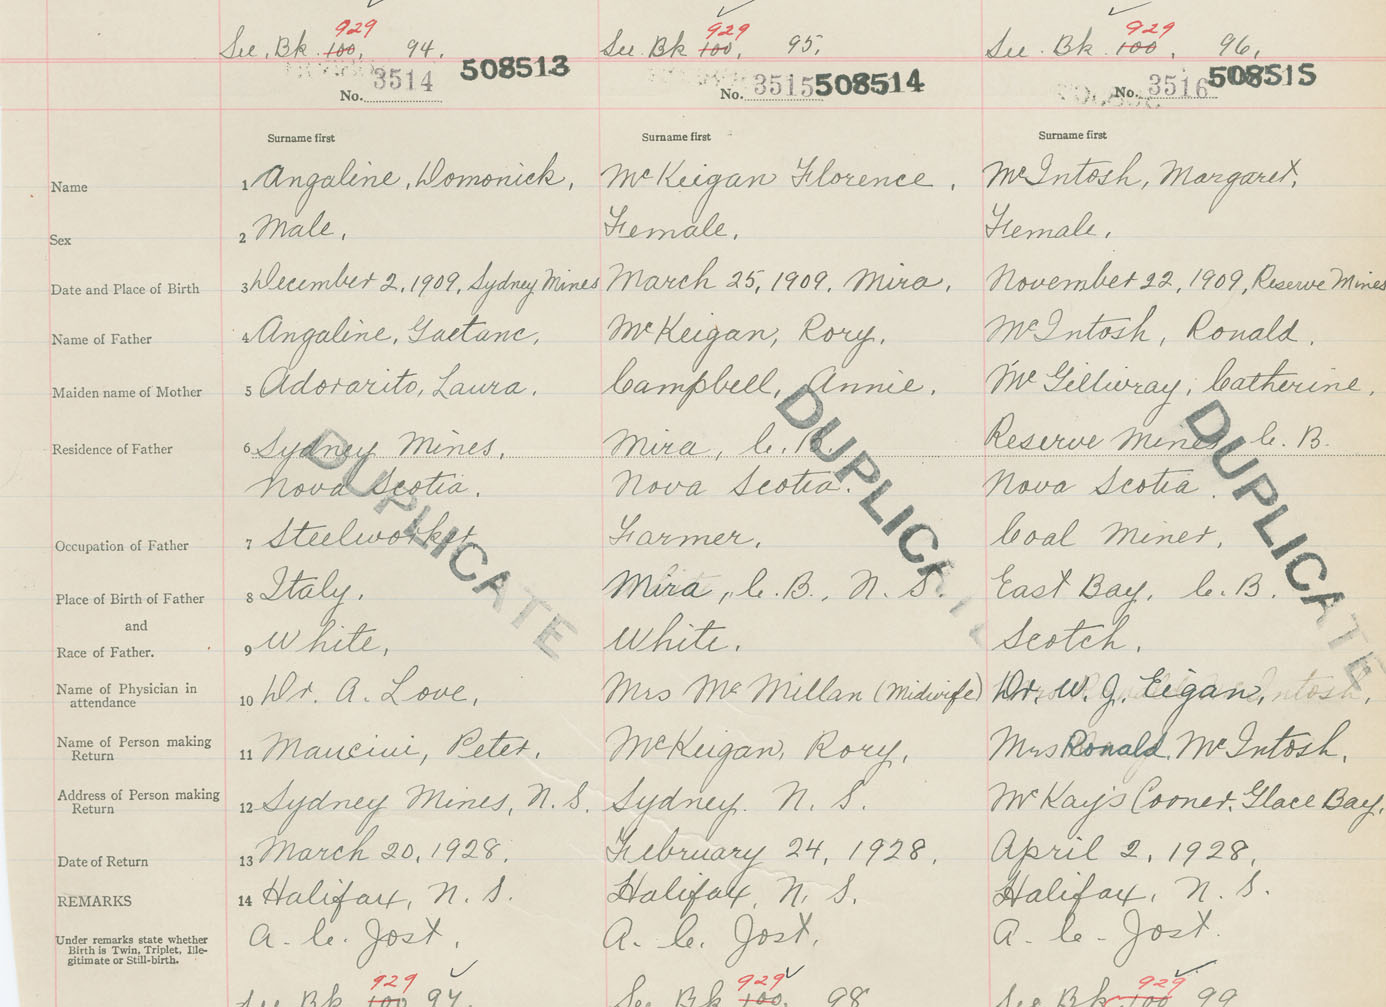 929 929 929
See Bk 100, 94. See Bk 100, 95, See Bk 100, 96,
508513 508514 508515
No. 3514 No. 3515 No. 3516
Surname first Surname first Surname first
Name 1 Angaline, Domonick, McKeigan Florence, McIntosh, Margaret,
Sex 2 Male, Female, Female,
Date and Place of Birth 3 December 2, 1909, Sydney Mines March 25, 1909, Mira, November 22, 1909, Reserve Mines
Name of Father 4 Angaline, Gaetanc, McKeigan, Rory, McIntosh, Ronald,
Maiden name of Mother 5 Adorarito, Laura, Campbell, Annie, McGillivray, Catherine,
Residence of Father 6 Sydney Mines, Mira, C. B. Reserve Mines C. B.
Nova Scotia. Nova Scotia. Nova Scotia.
DUPLICATE DUPLICATE DUPLICATE
Occupation of Father 7 Steelworker Farmer, Coal Miner,
Place of Birth of Father 8 Italy, Mira, C. B., N. S. East Bay, C. B.
and
Race of Father. 9 White, White, Scotch,
Name of Physician in
attendance 10 Dr. A. Love, Mrs McMillan (Midwife) Dr. W. J. Eigan,
Name of Person making
Return 11 Mancini, Peter, McKeigan, Rory, Mrs Ronald McIntosh,
Address of Person making
Return 12 Sydney Mines, N. S. Sydney N. S. McKay's Corner, Glace Bay,
Date of Return 13 March 20, 1928, February 24, 1928, April 2, 1928,
REMARKS 14 Halifax, N. S. Halifax, N. S. Halifax, N. S.
Under remarks state whether
Birth is Twin, Triplet, Ille-
gitimate or Still-birth.
A. C. Jost, A. C. Jost, A. C. Jost.
929 929 929
See Bk 100 97 See Bk 100, 98 See Bk 100 99